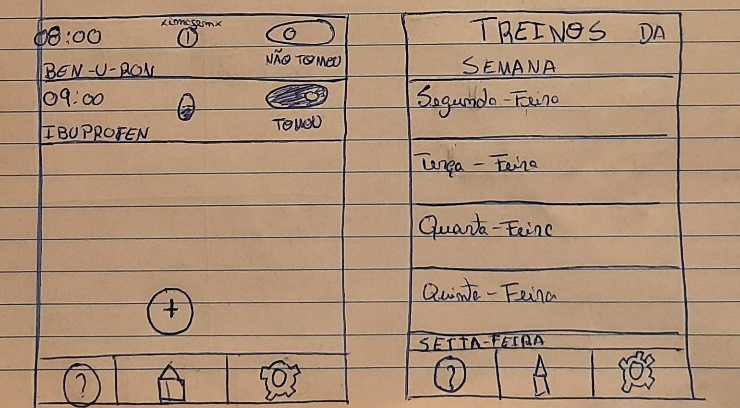 08:00
NÃO TOMOU
BEN-U-RON
09:00
TOMOU
IBUPROFEN
+
?
TREINOS DA
SEMANA
Segunda-Feira
Terça-Feira
Quarta-Feira
Quinta-Feira
SEXTA-FEIRA
?